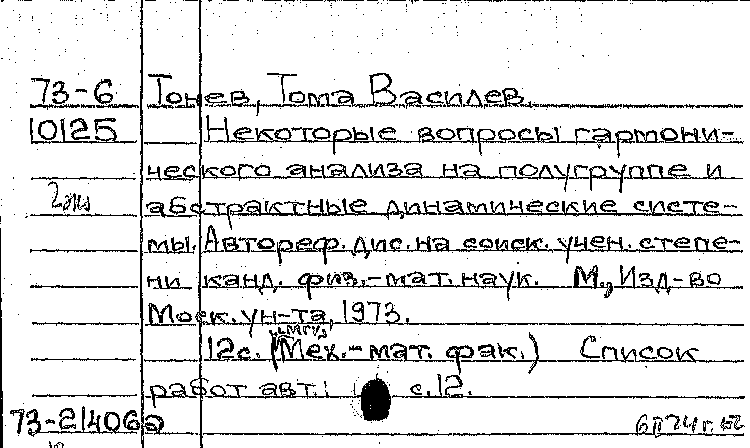 73-6 Тонев, Тома Василев.
10125 Некоторые вопросы гармони-
ческого анализа на полугруппе и
2 экз абстрактные динамические систе-
мы. Автореф. дис. на соиск. учен. степе-
ни канд. физ.-мат. наук. М., Изд-во
Моск. ун-та, 1973.
МГУ,
12с. (Мех.-мат. фак.) Список
работ авт.: с. 12.
73-21406